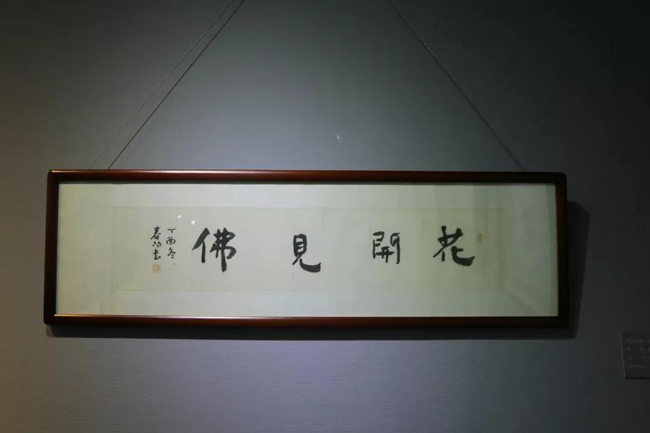 花開見佛
丁酉冬
春